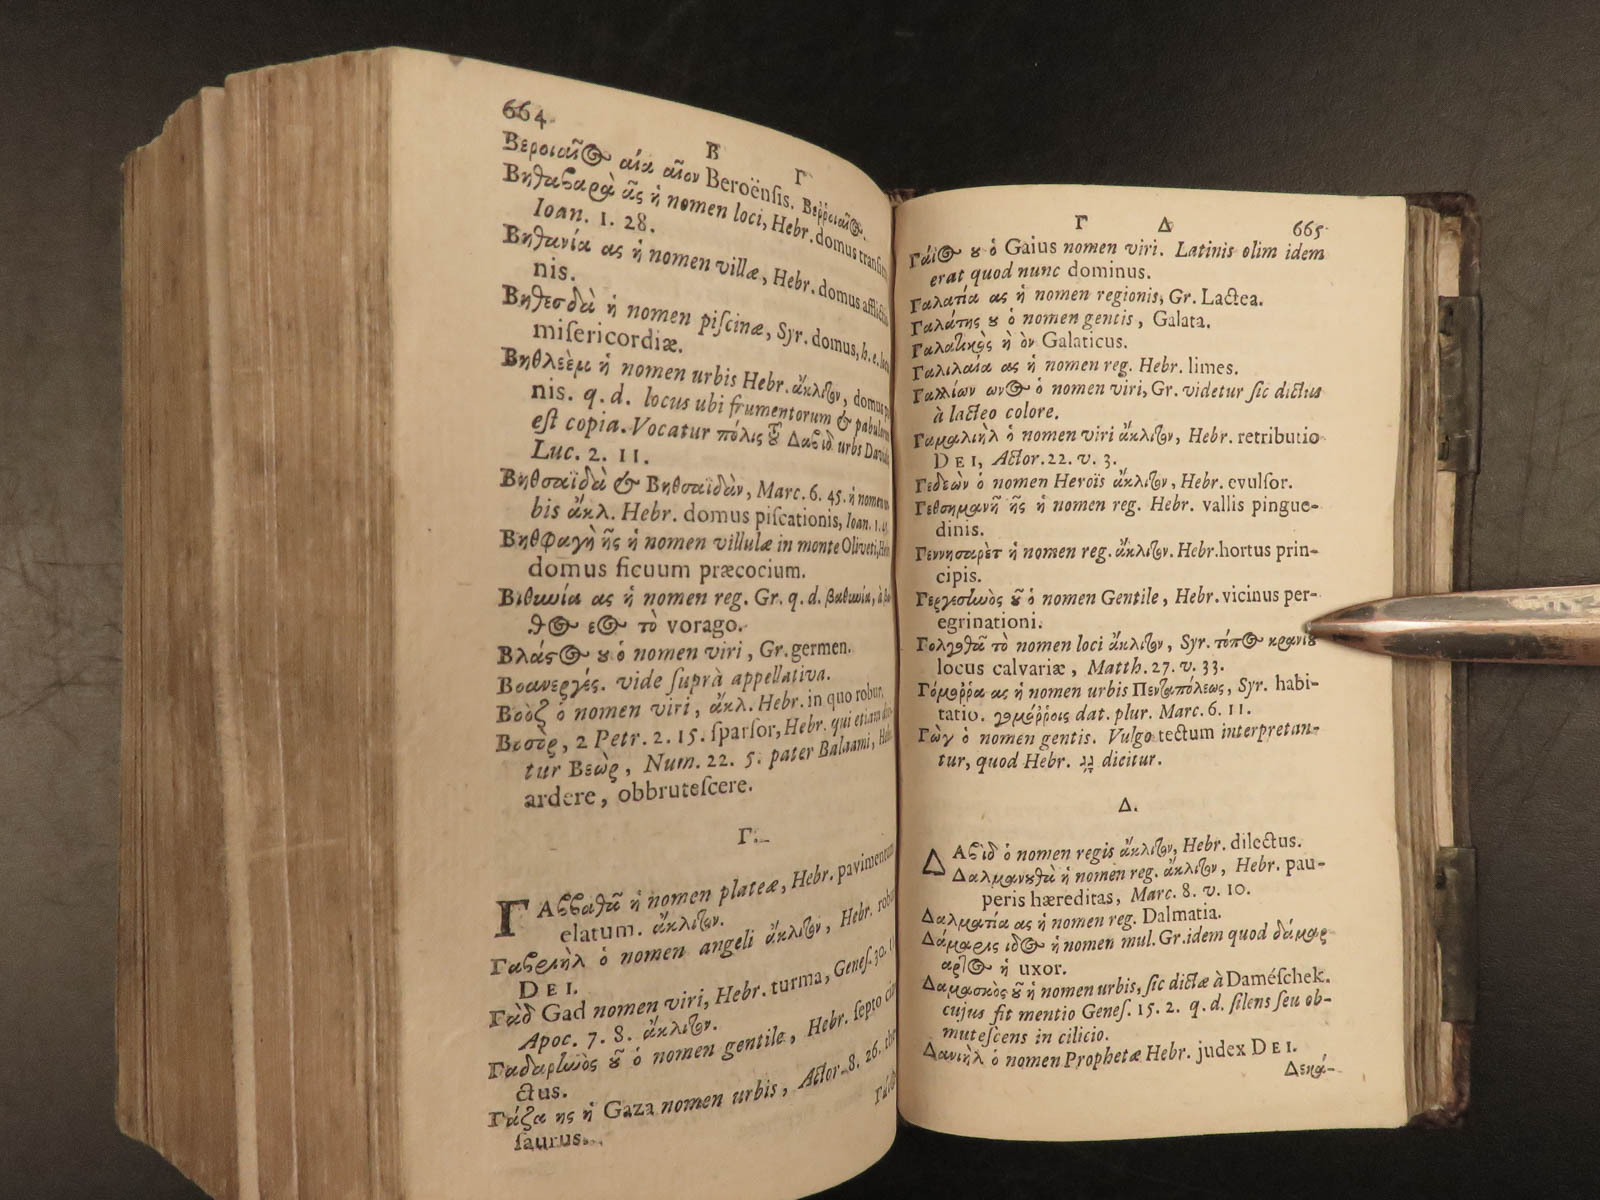 664
Β Γ
Βεροιαῖος αία αῖον Beroënsis. Βεῤῥοιαῖος.
Βηθαβαρὰ ᾶς ἡ nomen loci, Hebr. domus
Ioan. 1. 28.
Βηθανία ας ἡ nomen villæ, Hebr. domus
nis.
Βηθεσδὰ ἡ nomen piſcinæ, Syr. domus, h. e.
miſericordiæ.
Βηθλεὲμ ἡ nomen urbis Hebr. ἄκλιτον, domus
nis. q. d. locus ubi frumentorum &
eſt copia. Vocatur πόλις τȣ͂ Δαβὶδ urbs
Luc. 2. 11.
Βηθσαϊδὰ & Βηθσαϊδὰν, Marc. 6. 45. ἡ nomen
bis ἄκλ. Hebr. domus piſcationis, Ioan. 1.
Βηθφαγὴ ῆς ἡ nomen villulæ in monte Oliveti,
domus ficuum præcocium.
Βιθυνία ας ἡ nomen reg. Gr. q. d. βαθυνία, à
θος εος τὸ vorago.
Βλάςος ȣ ὁ nomen viri, Gr. germen.
Βοανεργές. vide ſuprà appellativa.
Βοὸζ ὁ nomen viri, ἄκλ. Hebr. in quo robur.
Βοσὸρ, 2 Petr. 2. 15. ſparſor, Hebr. qui etiam
tur Βεὼρ, Num. 22. 5. pater Balaami,
ardere, obbruteſcere.
Γ.
ΓΑββαθᾶ ἡ nomen plateæ, Hebr. pavimentum
elatum. ἄκλιτον.
Γαβριὴλ ὁ nomen angeli ἄκλιτον, Hebr. robur
DEI.
Γὰδ Gad nomen viri, Hebr. turma, Geneſ. 30.
Apoc. 7. 8. ἄκλιτον.
Γαδαρηνὸς ȣ͂ ὁ nomen gentile, Hebr. ſepto
ctus.
Γάζα ης ἡ Gaza nomen urbis, Actor. 8. 26.
ſaurus.
Γ Δ 665
Γάϊος ȣ ὁ Gaius nomen viri. Latinis olim idem
erat quod nunc dominus.
Γαλατία ας ἡ nomen regionis, Gr. Lactea.
Γαλάτης ȣ ὁ nomen gentis, Galata.
Γαλατικὸς ὴ ὸν Galaticus.
Γαλιλαία ας ἡ nomen reg. Hebr. limes.
Γαλλίων ωνος ὁ nomen viri, Gr. videtur ſic dictus
à lacteo colore.
Γαμαλιὴλ ὁ nomen viri ἄκλιτον, Hebr. retributio
DEI, Actor. 22. v. 3.
Γεδεὼν ὁ nomen Heroïs ἄκλιτον, Hebr. evulſor.
Γεθσημανῆ ῆς ἡ nomen reg. Hebr. vallis pingue-
dinis.
Γεννησαρὲτ ἡ nomen reg. ἄκλιτον. Hebr. hortus prin-
cipis.
Γεργεσηνὸς ȣ͂ ὁ nomen Gentile, Hebr. vicinus per-
egrinationi.
Γολγοθᾶ τὸ nomen loci ἄκλιτον, Syr. τόπος κρανίȣ
locus calvariæ, Matth. 27. v. 33.
Γόμοῤῥα ας ἡ nomen urbis Πενταπόλεως, Syr. habi-
tatio. γομόῤῥοις dat. plur. Marc. 6. 11.
Γὼγ ὁ nomen gentis. Vulgo tectum interpretan-
tur, quod Hebr. גג dicitur.
Δ.
ΔΑβὶδ ὁ nomen regis ἄκλιτον, Hebr. dilectus.
Δαλμανȣθὰ ἡ nomen reg. ἄκλιτον, Hebr. pau-
peris hæreditas, Marc. 8. v. 10.
Δαλματία ας ἡ nomen reg. Dalmatia.
Δάμαρις ιδος ἡ nomen mul. Gr. idem quod δάμαρ
αρτος ἡ uxor.
Δαμασκὸς ȣ͂ ἡ nomen urbis, ſic dictæ à Daméſchek.
cujus fit mentio Geneſ. 15. 2. q. d. ſilens ſeu ob-
muteſcens in cilicio.
Δανιὴλ ὁ nomen Prophetæ Hebr. judex DEI.
Δεκά-